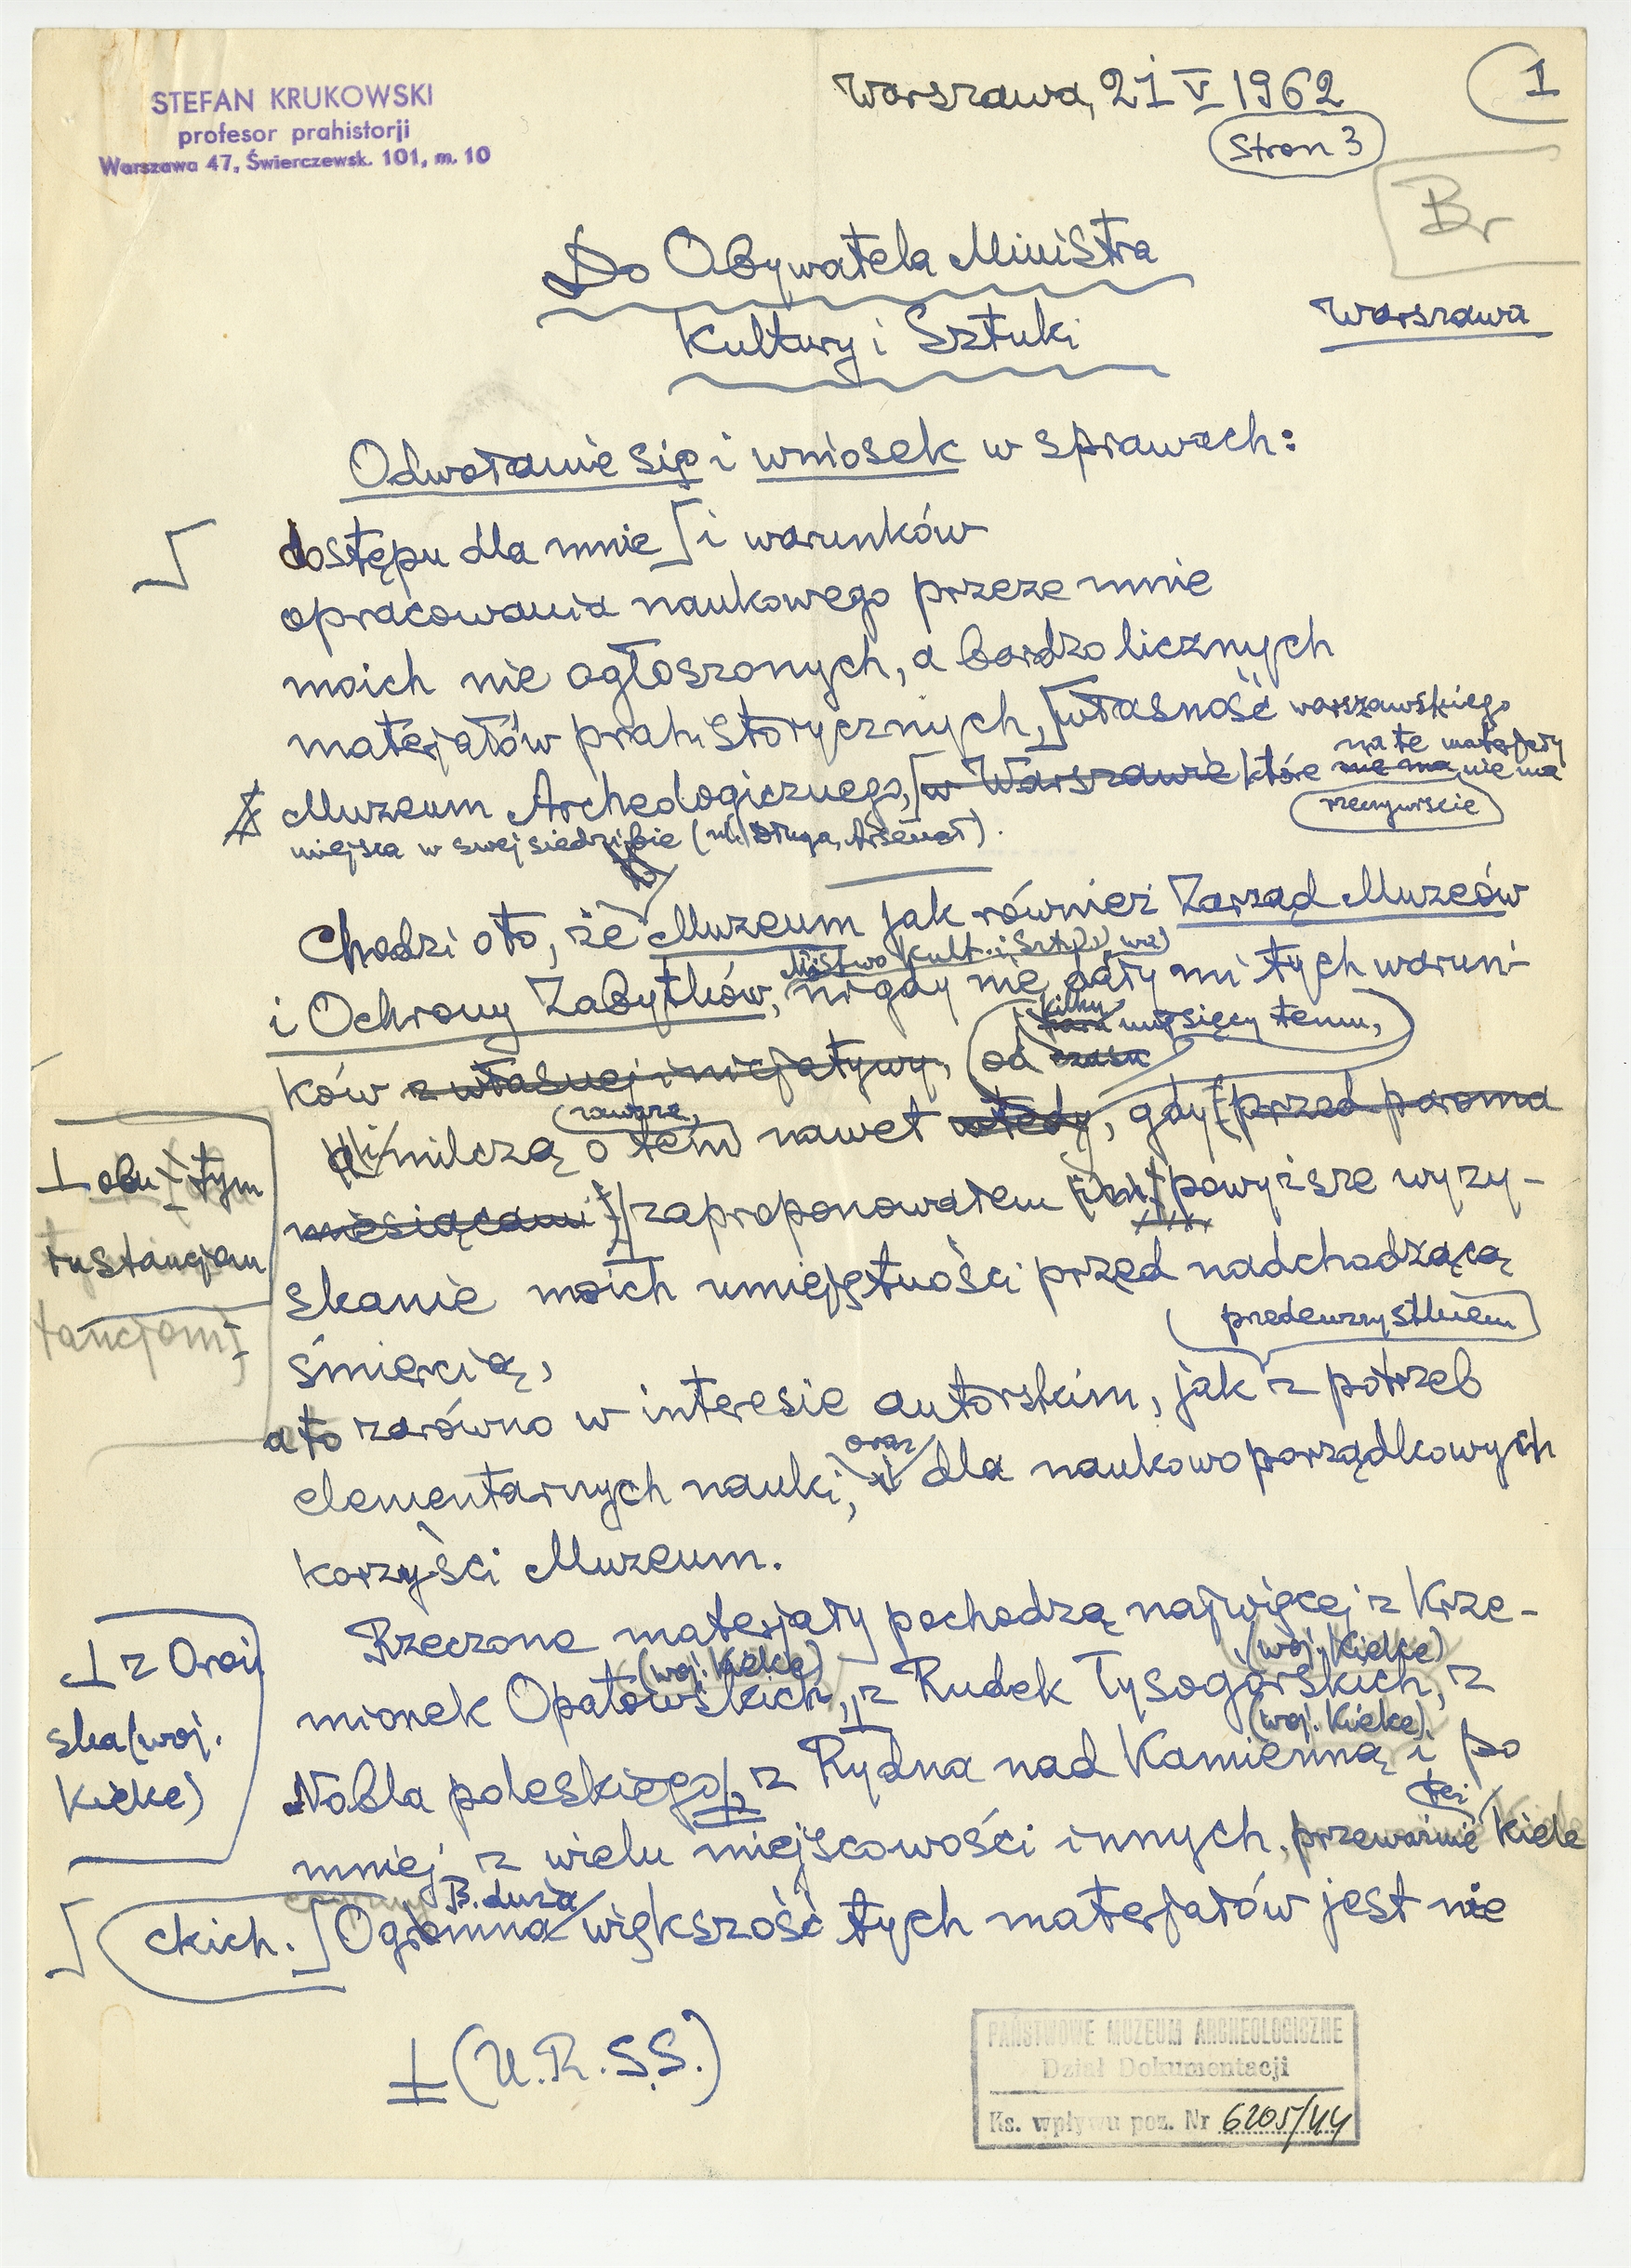 STEFAN KRUKOWSKI
profesor prahistorji
Warszawa 47, Świerczewsk. 101, m. 10
Warszawa, 21 V 1962
1
Stron 3
Br
Do Obywatela Ministra
Kultury i Sztuki
Warszawa
Odwołanie się i wniosek w sprawach:
dostępu dla mnie i warunków
opracowania naukowego przeze mnie
moich nie ogłoszonych, a bardzo licznych
materjałów prahistorycznych, własność warszawskiego
na te materjały
Muzeum Archeologicznego, w Warszawie które nie ma nie ma
rzeczywiście
miejsca w swej siedzibie (ul. Długa, Arsenał).
Chodzi oto, że Muzeum jak również Zarząd Muzeów
Kult. i Szt.
i Ochrony Zabytków, nigdy nie dały mi tych warun-
kilku miesięcy temu,
ków z własnej inicjatywy, od czasu
zawsze,
milczą o tem nawet wtedy, gdy przed paroma
⊥ obu tym
instancjom
tancjom
miesiącami zaproponowałem im powyższe wyzy-
skanie moich umiejętności przed nadchodzącą
śmiercią,
przedewszystkiem
a to zarówno w interesie autorskim, jak z potrzeb
oraz
elementarnych nauki, i dla naukowoporządkowych
korzyści Muzeum.
Rzeczone materjały pochodzą najwięcej z Krze-
(woj. Kielce) (woj. Kielce)
mionek Opatowskich, ⊥ z Rudek Łysogórskich, z
⊥ z Oroń
ska (woj.
Kielce)
(woj. Kielce)
Nobla poleskiego, z Rydna nad Kamienną i po
też
mniej z wielu miejscowości innych, przeważnie Kiele
B. duża
ckich. Ogromna większość tych materjałów jest nie
⊥ (U.R.S.S.)
PAŃSTWOWE MUZEUM ARCHEOLOGICZNE
Dział Dokumentacji
Ks. wpływu poz. Nr 6205/44